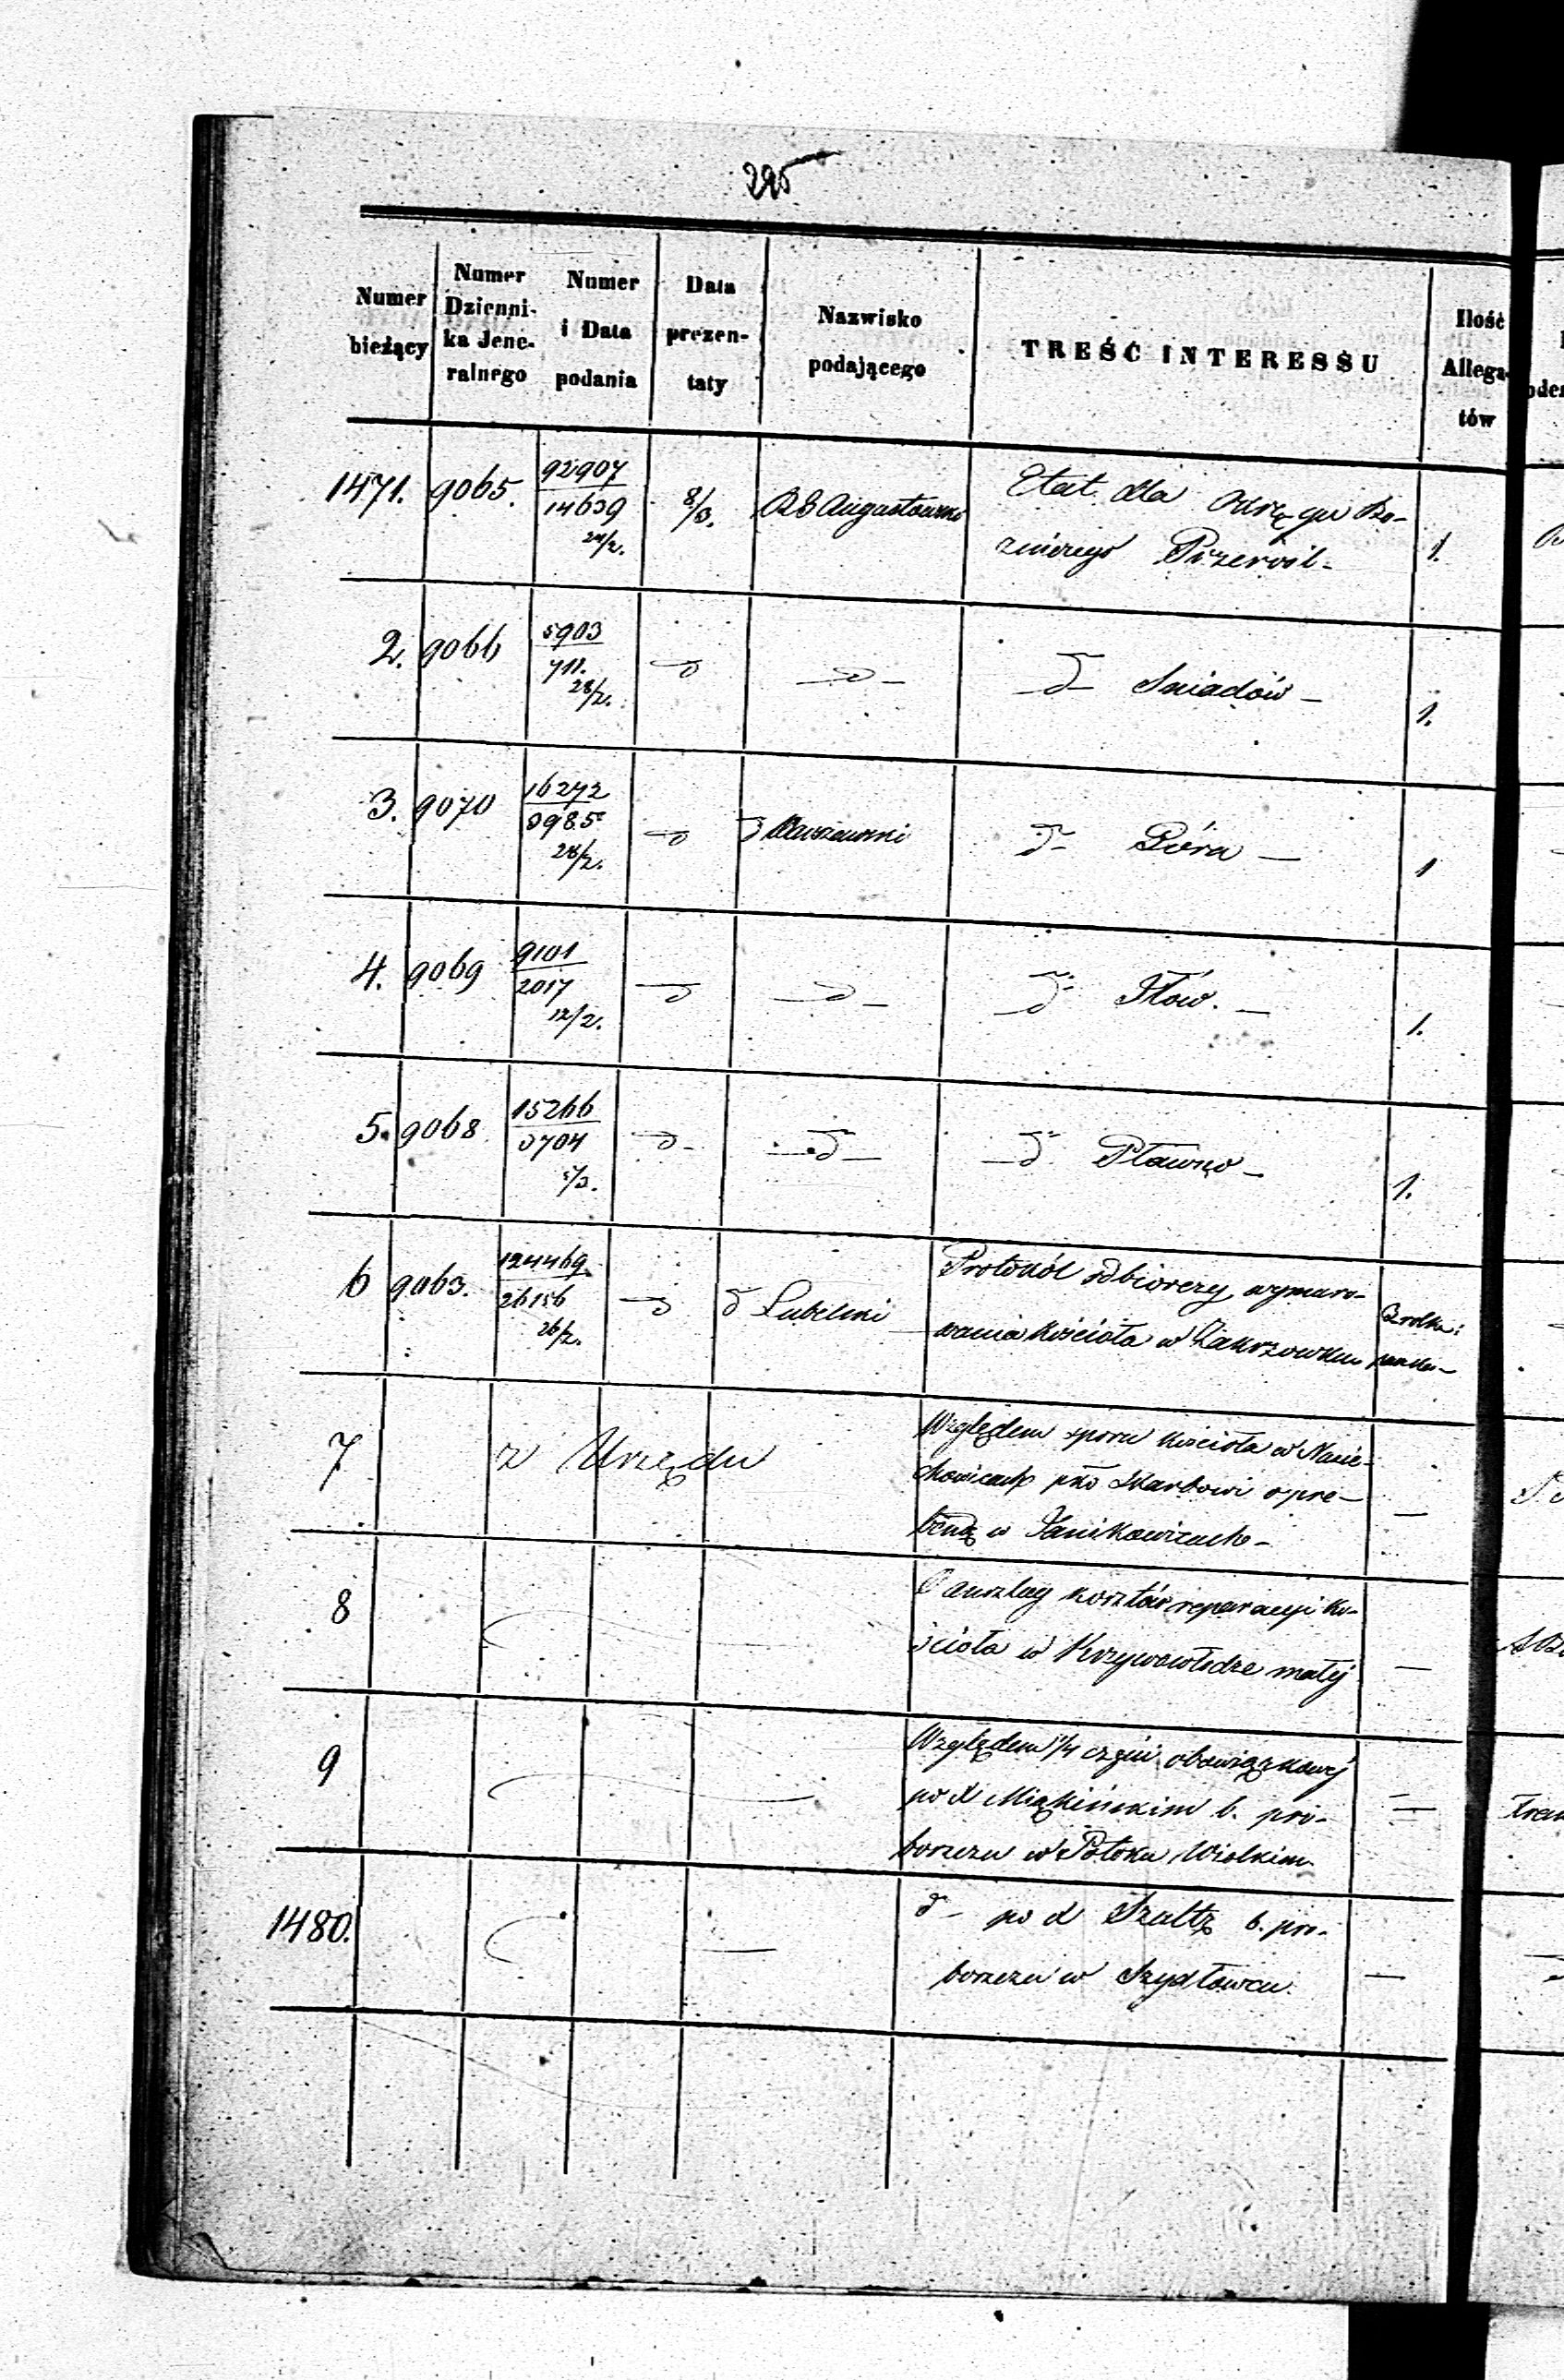 295
Numer bieżący
Numer Dzienni- ka Jene- ralnego
Numer i Data podania
Data prezen- taty
Nazwisko podającego
TREŚĆ INTERESSU
Ilość Allega- tów
1471. 9065. 92907 14639 8/3. Augustowski Etat dla Okręgu Bo-
żniczego Przerośl- 1.
2. 9066 5903 711. 28/2. d d d Sniadów - 1.
3. 9070 16272 3985 28/2. d d Warszawski d Góra - 1
4. 9069 9101 2017 12/2. d d d Iłów. - 1.
5. 9068 15266 3704 5/3. d d d Pławno - 1.
6 9063. 124469 26156 26/2. d d Lubelski Protokół odbiorczy wymuro-
wania Kościoła w Zakrzowku
7 z Urzędu Względem sporu Kościoła w
pko Skarbowi o pre-
bendę w Janikowicach -
8 kosztów reparacyi Ko-
ścioła w Krzywowłodze małej -
9 Względem 1/4 części obowiązkowej
po X Miąkińskim b. pro-
boszczu w Potoku Wielkim
1480. d - po X Szaltz b. pro-
boszczu w Szydłowcu. -